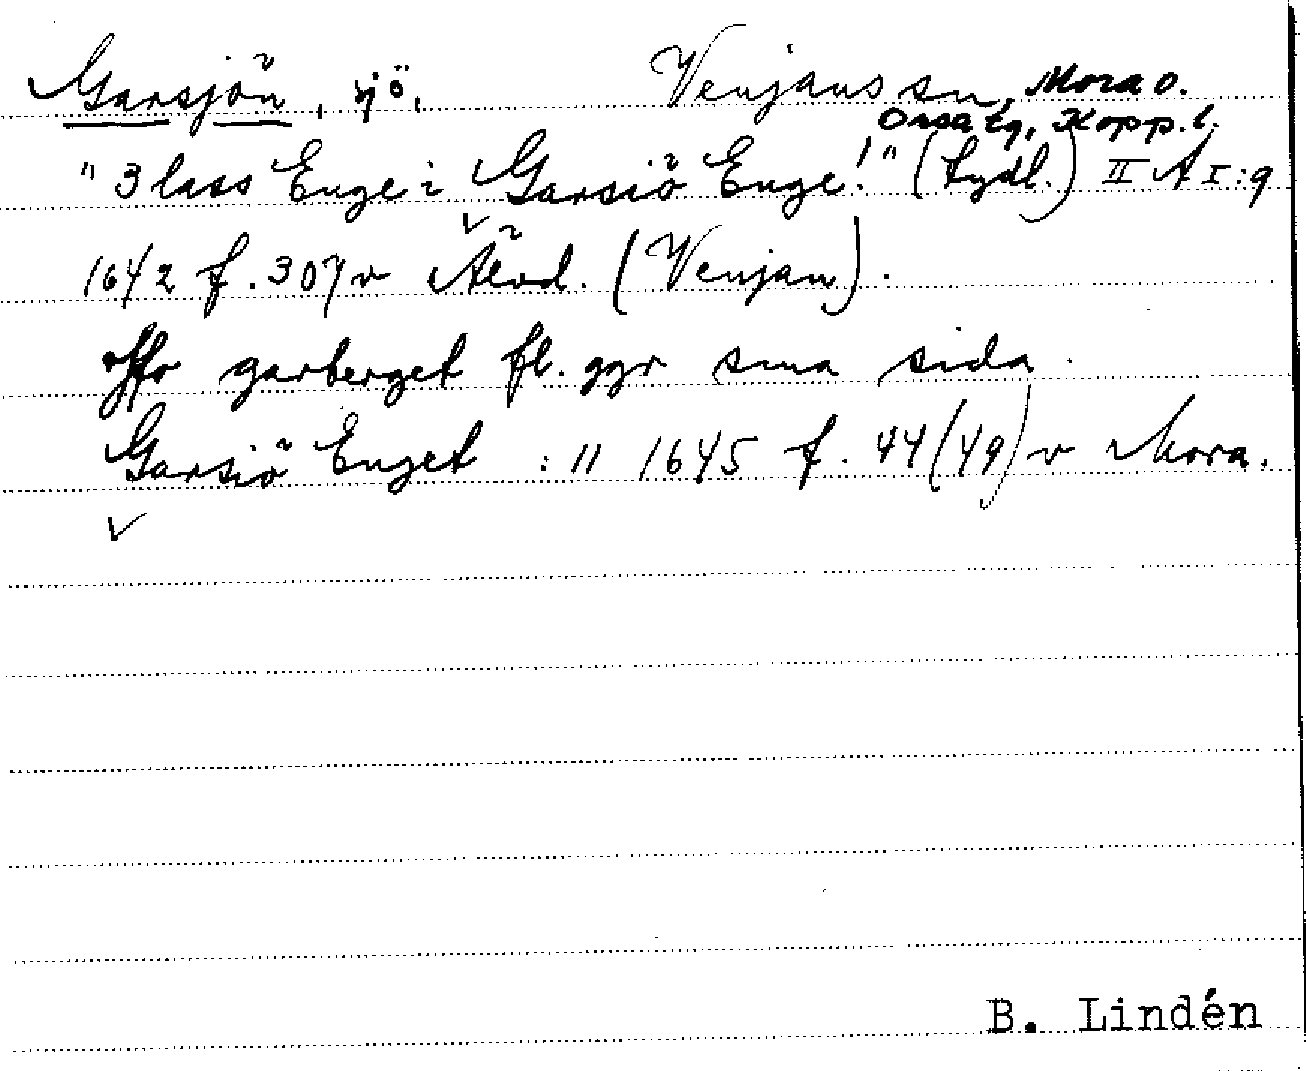 Garsjön, sjö, Venjans sn, Mora o.
Orsa tg, Kopp. l.
"3 lass Enge i Garsiö Enge!" (tydl.) II A I:9
1642 f. 307 v Älvd. (Venjan).
garberget fl. ggr sma sida.
Garsiö Enget : 11 1645 f. 44(49) v Mora.
B. Lindén